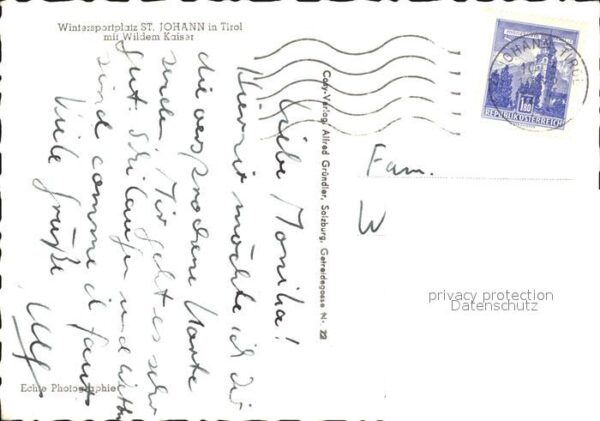 Wintersportplatz ST. JOHANN in Tirol
mit Wildem Kaiser
Liebe Monika!
Hiermit möchte ich dir
die versprochene Karte
senden. Mir geht es sehr
gut. Skilaufen und
sind comme il faut.
Viele Grüße
Echte Photographie
Cosy-Verlag Alfred Gründler, Salzburg, Getreidegasse Nr. 22
JOHANN TIROL
1.80
REPUBLIK ÖSTERREICH
Fam.
W
privacy protection
Datenschutz